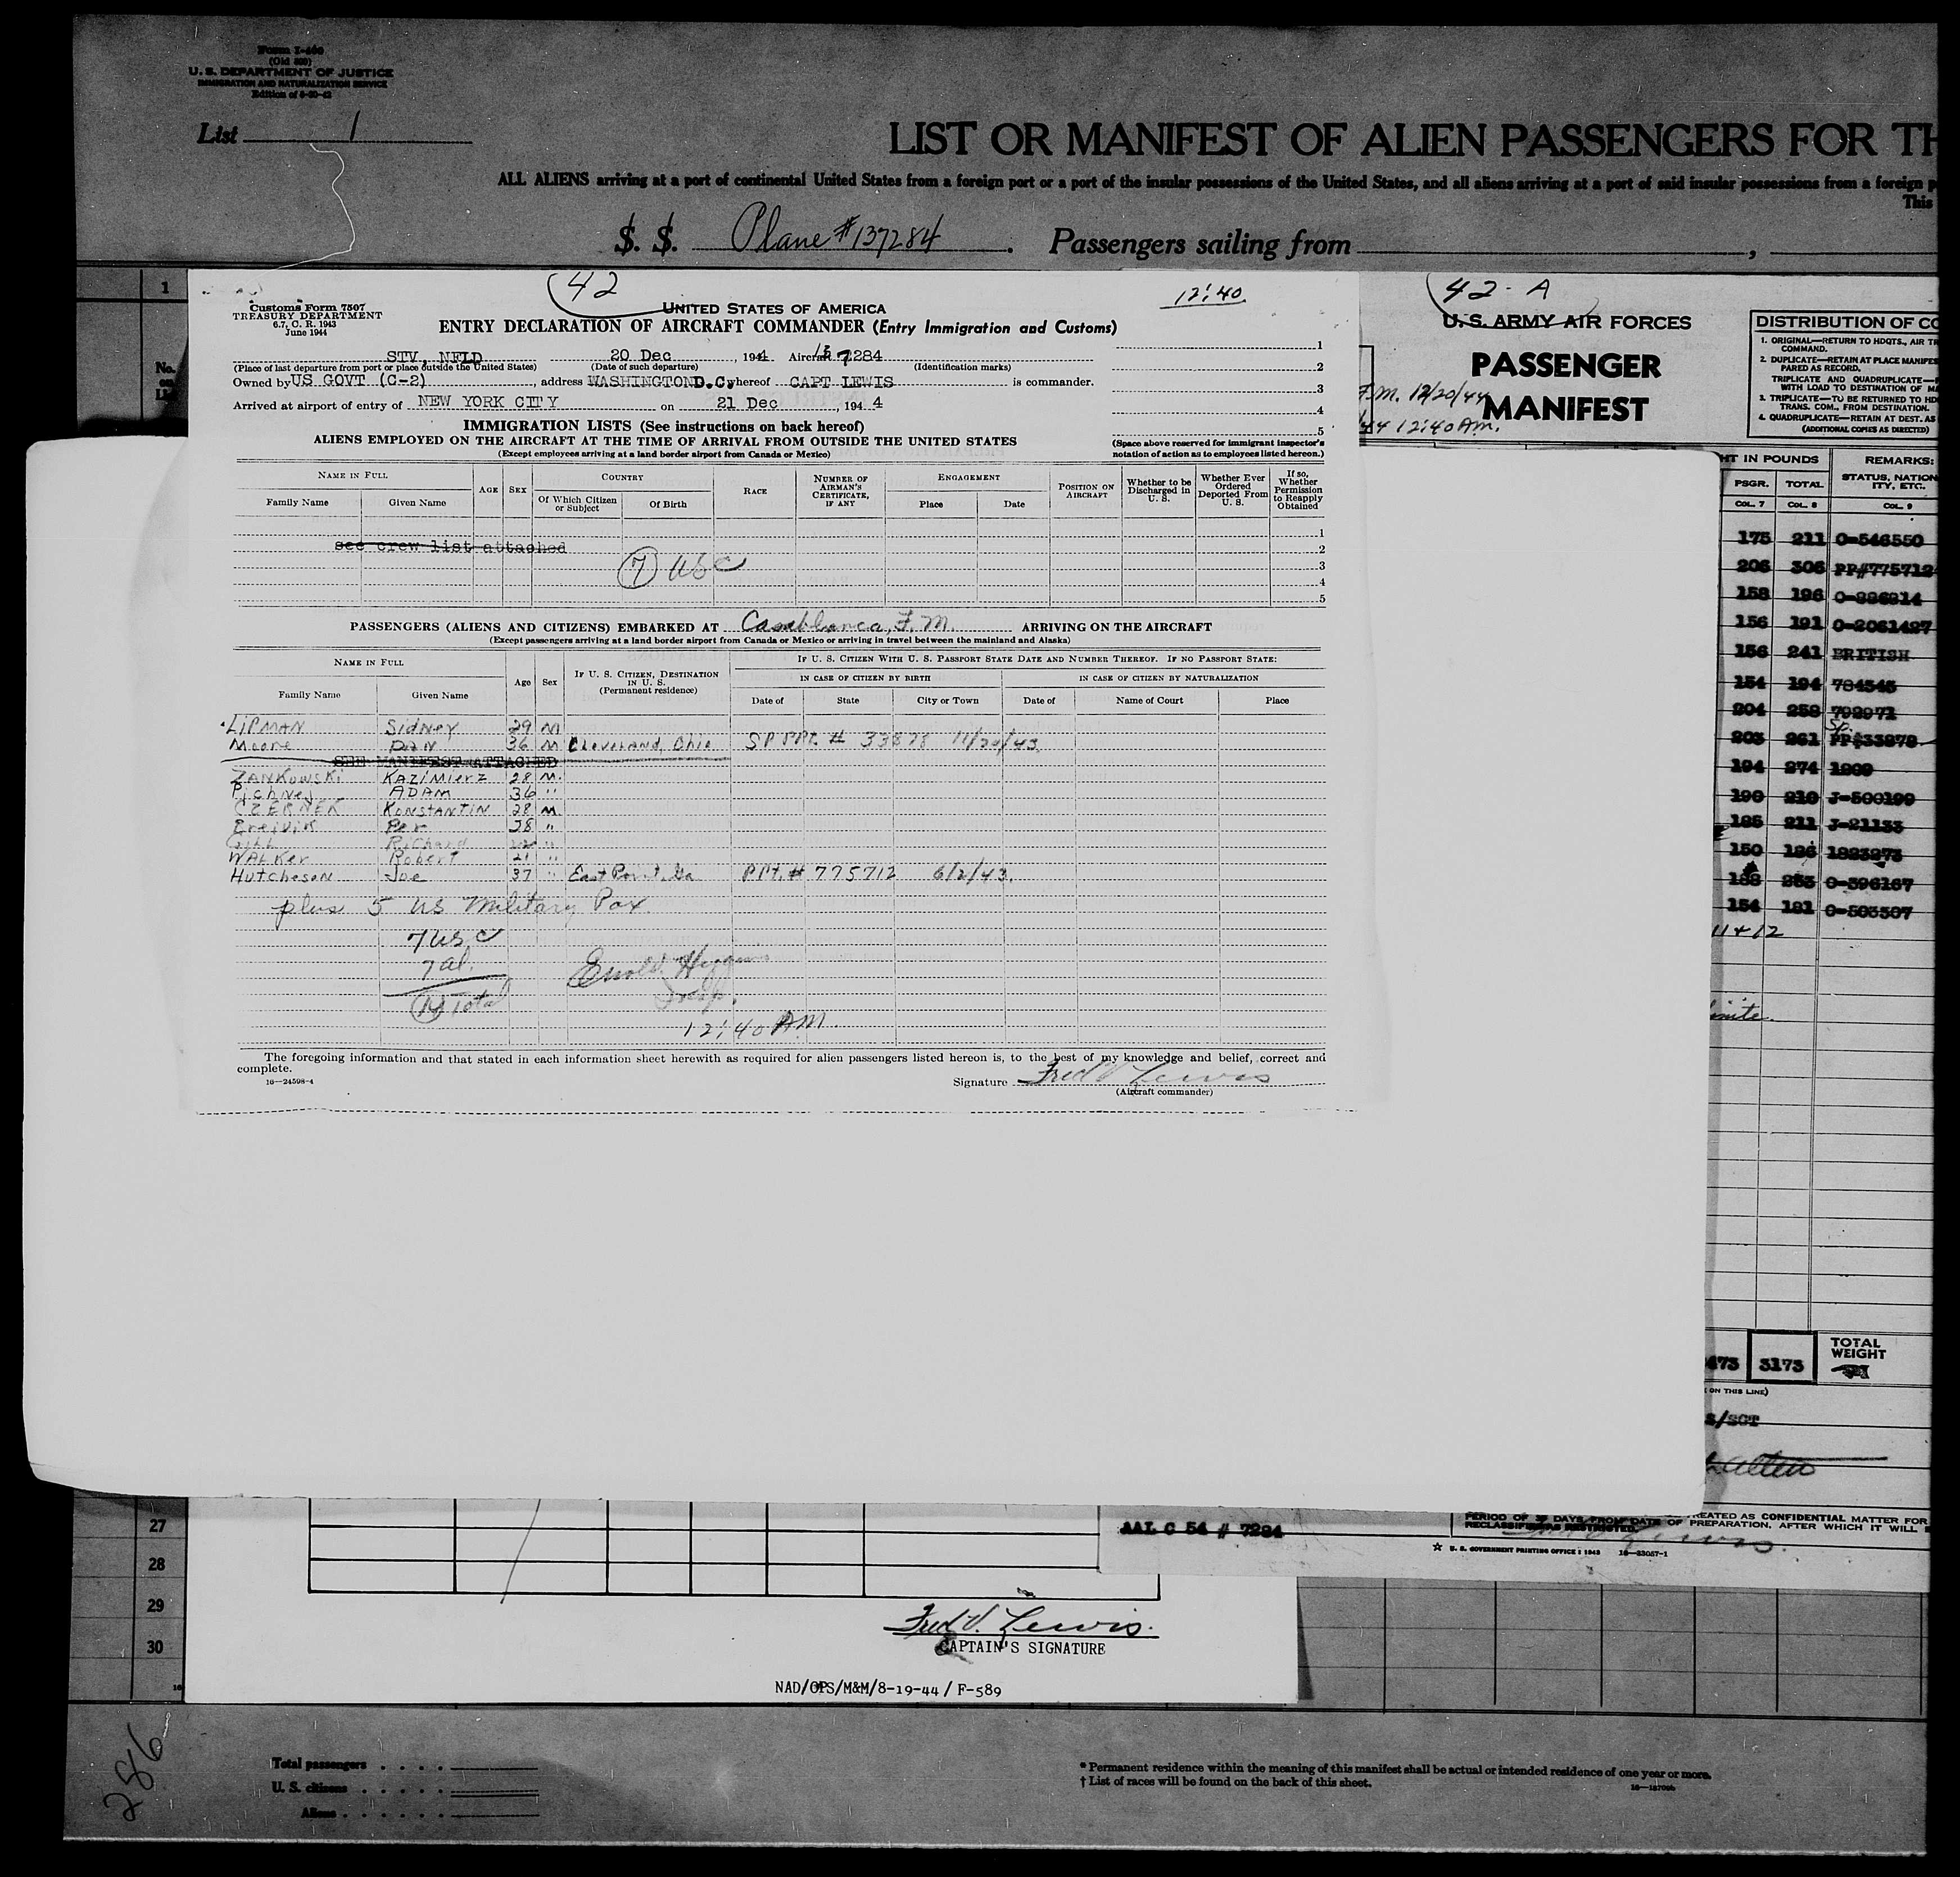 Form I-466
(Old 500)
U. S. DEPARTMENT OF JUSTICE
IMMIGRATION AND NATURALIZATION SERVICE
List 1
LIST OR MANIFEST OF ALIEN PASSENGERS FOR TH
ALL ALIENS arriving at a port of continental United States from a foreign port or a port of the insular possessions of the United States, and all aliens arriving at a port of said insular possessions from a foreign p
This
S. S. Plane #137284. Passengers sailing from ,
1
No.
on
42
12:40
Customs Form 7507
TREASURY DEPARTMENT
6.7, C. R. 1943
June 1944
UNITED STATES OF AMERICA
ENTRY DECLARATION OF AIRCRAFT COMMANDER (Entry Immigration and Customs)
STV, NFLD 20 Dec , 1944 Aircraft 137284
(Place of last departure from port or place outside the United States) (Date of such departure) (Identification marks)
Owned by US GOVT (C-2) , address WASHINGTON D.C. whereof CAPT LEWIS is commander.
Arrived at airport of entry of NEW YORK CITY on 21 Dec , 194 4
1
2
3
4
5
IMMIGRATION LISTS (See instructions on back hereof)
ALIENS EMPLOYED ON THE AIRCRAFT AT THE TIME OF ARRIVAL FROM OUTSIDE THE UNITED STATES
(Except employees arriving at a land border airport from Canada or Mexico)
(Space above reserved for immigrant inspector's notation of action as to employees listed hereon.)
NAME IN FULL AGE SEX COUNTRY RACE NUMBER OF AIRMAN'S CERTIFICATE, IF ANY ENGAGEMENT POSITION ON AIRCRAFT Whether to be Discharged in U. S. Whether Ever Ordered Deported From U. S. If so, Whether Permission to Reapply Obtained
Family Name Given Name Of Which Citizen or Subject Of Birth Place Date
1
see crew list attached 2
7 USC 3
4
5
PASSENGERS (ALIENS AND CITIZENS) EMBARKED AT Casablanca, F. M. ARRIVING ON THE AIRCRAFT
(Except passengers arriving at a land border airport from Canada or Mexico or arriving in travel between the mainland and Alaska)
NAME IN FULL Age Sex IF U. S. CITIZEN, DESTINATION IN U. S. (Permanent residence) IF U. S. CITIZEN WITH U. S. PASSPORT STATE DATE AND NUMBER THEREOF. IF NO PASSPORT STATE:
IN CASE OF CITIZEN BY BIRTH IN CASE OF CITIZEN BY NATURALIZATION
Family Name Given Name Date of State City or Town Date of Name of Court Place
LIPMAN Sidney 29 M
Moore DAN 36 M Cleveland, Ohio SP PPt. # 33878 11/30/43
SEE MANIFEST ATTACHED
ZANKOWSKI KAZIMIERZ 28 M.
ADAM 36 "
KONSTANTIN 28 M.
Breivik Per 38 "
Gill Richard 22 "
WALKER Robert 21 "
Hutcheson Joe 37 " East Point, Ga PPt. # 775712 6/2/43.
plus 5 US Military Pax.
7 USC
7 al.
14 Total
Insp.
12:40 AM.
The foregoing information and that stated in each information sheet herewith as required for alien passengers listed hereon is, to the best of my knowledge and belief, correct and
complete.
16—24598-4
Signature Fred V Lewis
(Aircraft commander)
42-A
U. S. ARMY AIR FORCES
PASSENGER
MANIFEST
F.M. 12/20/44
44 12:40 AM.
DISTRIBUTION OF CO
1. ORIGINAL—RETURN TO HDQTS., AIR TR
COMMAND.
2. DUPLICATE—RETAIN AT PLACE MANIFES
PARED AS RECORD.
TRIPLICATE AND QUADRUPLICATE—
WITH LOAD TO DESTINATION OF MA
3. TRIPLICATE—TO BE RETURNED TO HD
TRANS. COM., FROM DESTINATION.
4. QUADRUPLICATE—RETAIN AT DEST. AS
(ADDITIONAL COPIES AS DIRECTED)
HT IN POUNDS REMARKS:
PSGR. TOTAL STATUS, NATION
ITY, ETC.
COL. 7 COL. 8 COL. 9
175 211 O-546550
206 306 PP#775712
158 196 O-886814
156 191 O-2061427
156 241 BRITISH
154 194 784545
204 258 792971
Sp.
203 261 PP#33878
194 274 1909
190 210 J-500199
185 211 J-21133
150 186 1823273
188 253 O-396167
154 181 O-503507
11 + 12
473 3173 TOTAL
WEIGHT
ON THIS LINE)
S/SGT
AAL C 54 # 7284
PERIOD OF DAYS FROM DATE OF PREPARATION, AFTER WHICH IT WILL
REATED AS CONFIDENTIAL MATTER FOR
RECLASSIFIED AS RESTRICTED.
U. S. GOVERNMENT PRINTING OFFICE : 1943 16—33057-1
27
28
29
30
Fred V. Lewis.
CAPTAIN'S SIGNATURE
NAD/OPS/M&M/8-19-44 / F-589
286
Total passengers
U. S. citizens
Aliens
* Permanent residence within the meaning of this manifest shall be actual or intended residence of one year or more.
† List of races will be found on the back of this sheet.